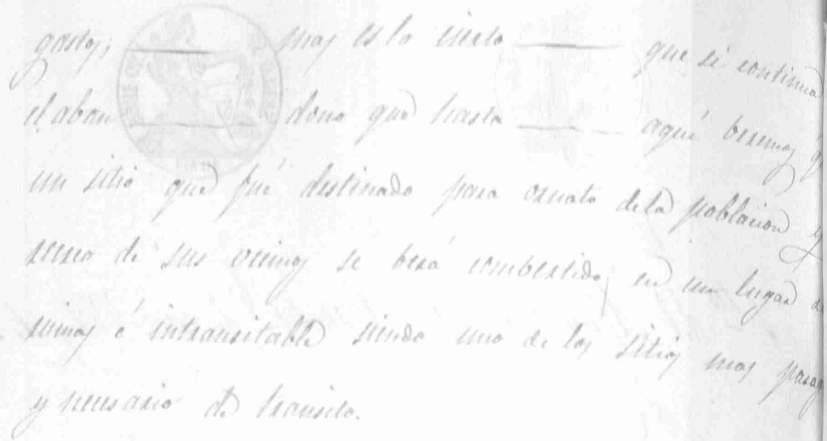 gastos; mas es lo cierto que si continua
el aban dono que hasta aqui beremos q
un sitio que fué destinado para ornato de la poblacion y
recreo de sus vecinos se berá combertido, en un lugar de
ruinas é intransitable siendo uno de los sitios mas pasag
y necesario de transito.